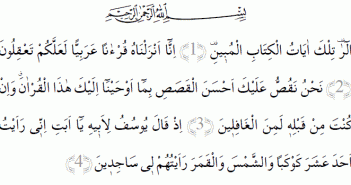 بِسْمِ اللّٰهِ الرَّحْمٰنِ الرَّحِيمِ
الٓرٰ تِلْكَ اٰيَاتُ الْكِتَابِ الْمُبِينِ ﴿1﴾ اِنَّٓا اَنْزَلْنَاهُ قُرْءٰنًا عَرَبِيًّا لَعَلَّكُمْ تَعْقِلُونَ
﴿2﴾ نَحْنُ نَقُصُّ عَلَيْكَ اَحْسَنَ الْقَصَصِ بِمَٓا اَوْحَيْنَٓا اِلَيْكَ هٰذَا الْقُرْاٰنَ وَاِنْ
كُنْتَ مِنْ قَبْلِهِ لَمِنَ الْغَافِلِينَ ﴿3﴾ اِذْ قَالَ يُوسُفُ لِاَبِيهِ يَٓا اَبَتِ اِنِّى رَاَيْتُ
اَحَدَ عَشَرَ كَوْكَبًا وَالشَّمْسَ وَالْقَمَرَ رَاَيْتُهُمْ لِى سَاجِدِينَ ﴿4﴾